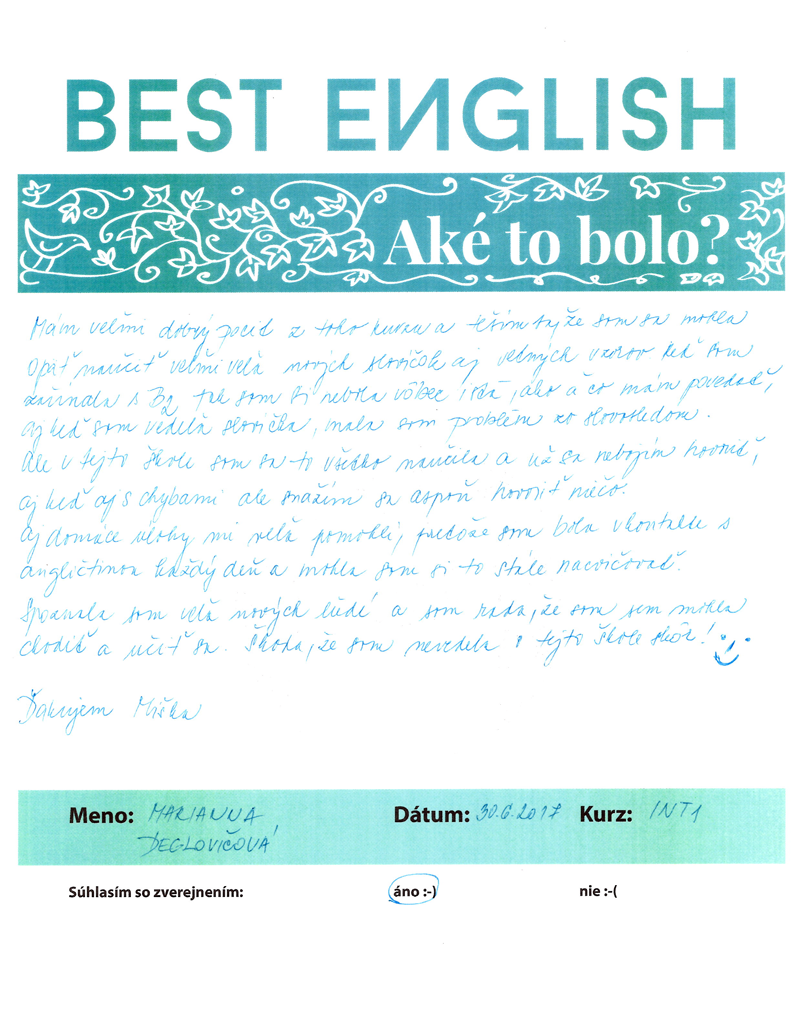 BEST ENGLISH
Aké to bolo?
Mám veľmi dobrý pocit z toho kurzu a teším sa, že som sa mohla
opäť naučiť veľmi veľa nových slovíčok aj vetných vzorov keď som
začínala s B2 tak som si nebola vôbec istá, ako a čo mám povedať,
aj keď som vedela slovíčka, mala som problém zo slovosledom.
Ale v tejto škole som sa to všetko naučila a už sa nebojím hovoriť,
aj keď aj s chybami ale snažím sa aspoň hovoriť niečo.
Aj domáce úlohy mi veľa pomohli, pretože som bola v kontakte s
angličtinou každý deň a mohla som si to stále nacvičovať.
Spoznala som veľa nových ľudí a som rada, že som sem mohla
chodiť a učiť sa. Škoda, že som nevedela o tejto škole skôr!
Ďakujem Miška
Meno: MARIANNA
DEGLOVIČOVÁ
Dátum: 30.6.2017 Kurz: INT1
Súhlasím so zverejnením: áno :-) nie :-(